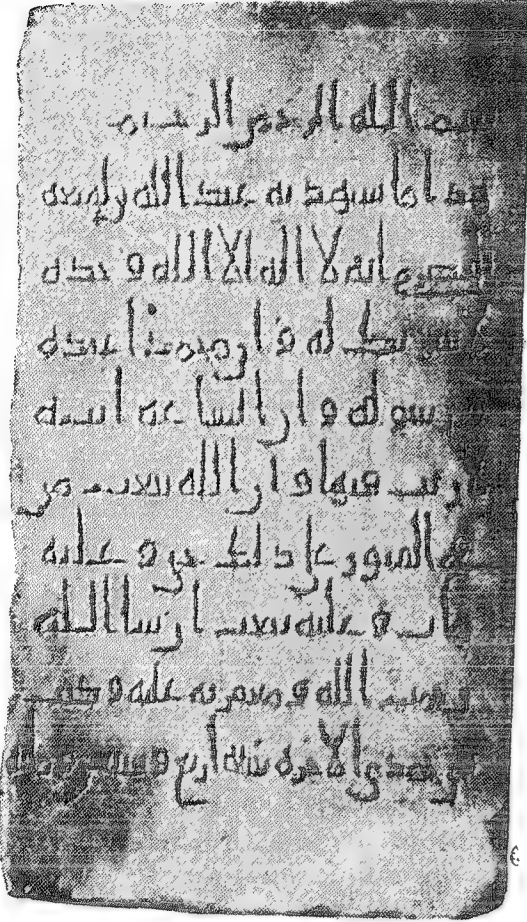 بسم الله الرحمن الرحيم
هذا ما شهد به عبد الله بن لهيعه
الحضرمي انه لا اله الا الله وحده
لا شريك له و ان محمدا عبده
ورسوله و ان الساعه اتيه
لا ريب فيها و ان الله يبعث من
في القبور على ذلك حيي و عليه
مات و عليه يبعث ان شا الله
الله و مغفرته عليه و كتب
في جمدى الاخره سنه اربع و سبعين و مائه